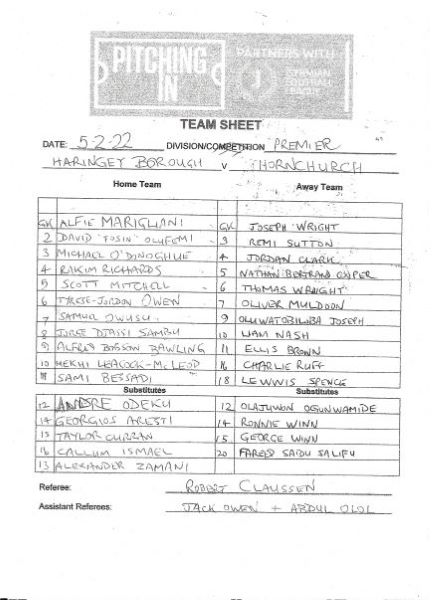 PITCHING IN
PARTNERS WITH
ISTHMIAN FOOTBALL LEAGUE
TEAM SHEET
DATE: 5-2-22 DIVISION/COMPETITION PREMIER
HARINGEY BOROUGH V THORNCHURCH
Home Team Away Team
GK ALFIE MARIGLIANI GK JOSEPH WRIGHT
2 DAVID "TOSIN" OLUFEMI 3 REMI SUTTON
3 MICHAEL O'DINOGHUE 4 JORDAN CLARK
4 RAKIM RICHARDS 5 NATHAN BERTRAND COOPER
5 SCOTT MITCHELL 6 THOMAS WRAIGHT
6 TYRESE-JORDON OWEN 7 OLIVER MULDOON
7 SAMUR OWUSU 9 OLUWATOBILOBA JOSEPH
8 JORGE DJASSI SAMBU 10 LIAM NASH
9 ALFRED BOSSON BAWLING 11 ELLIS BROWN
10 MEKHI LEACOCK-McLEOD 16 CHARLIE RUFF
SAMI BESSADI 18 LEWWIS SPENCE
Substitutes Substitutes
12 ANDRE ODEKU 12 OLAJUWON OGUNWAMIDE
14 GEORGIOS ARESTI 14 RONNIE WINN
15 TAYLOR CURRAN 15 GEORGE WINN
16 CALLUM ISMAEL 20 FARED SAIDU SALIFU
13 ALEXANDER ZAMANI
Referee: ROBERT CLAUSSEN
Assistant Referees: JACK OWEN + ABDUL OLOL